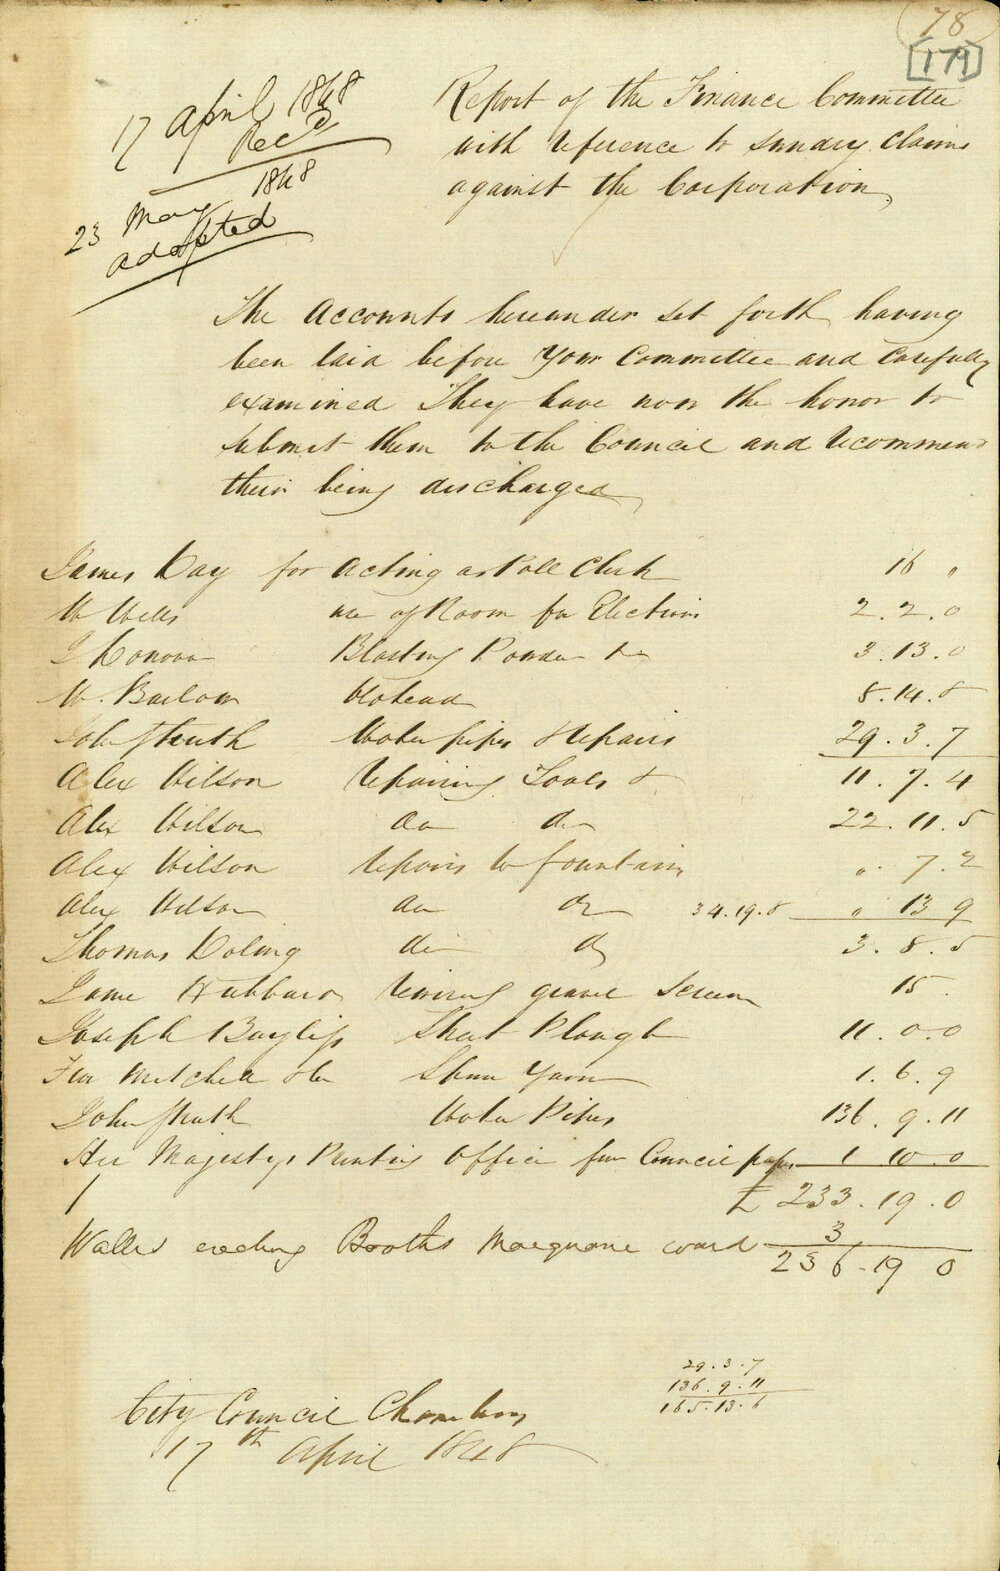 78
[179]
17 April 1848
Recd
23 May 1848
adopted
Report of the Finance Committee
with reference to sundry claims
against the Corporation,
The Accounts hereunder set forth having
been laid before Your Committee and carefully
examined They have now the honor to
submit them to the Council and recommend
their being discharged,
James Day for Acting as Poll Clerk 16 "
W Wells use of Room for Elections 2.2.0
J Donovan Blasting Powder &c 3.13.0
W. Barlow 8.14.8
John Struth Water pipes & Repairs 29.3.7
Alex Wilson Repairing Tools & 11.7.4
Alex Wilson do do 22.11.5
Alex Wilson repairs to fountains " 7.2
Alex Wilson do do 34.19.8 " 13 9
Thomas Doling do do 3.8.5
Jane Hubbard rewiring gravel Screen 15.
Joseph Bayliss Skut Plough 11.0.0
Fras Mitchell & Co Spun Yarn 1.6.9
John Struth Water Pipes 136.9.11
Her Majestys Printing Office for Council paper 1 10 0
£ 233.19.0
Waller erecting Booths Macquarie ward 3
236.19 0
29.3.7
136.9.11
165.13.6
City Council Chambers
17th April 1848